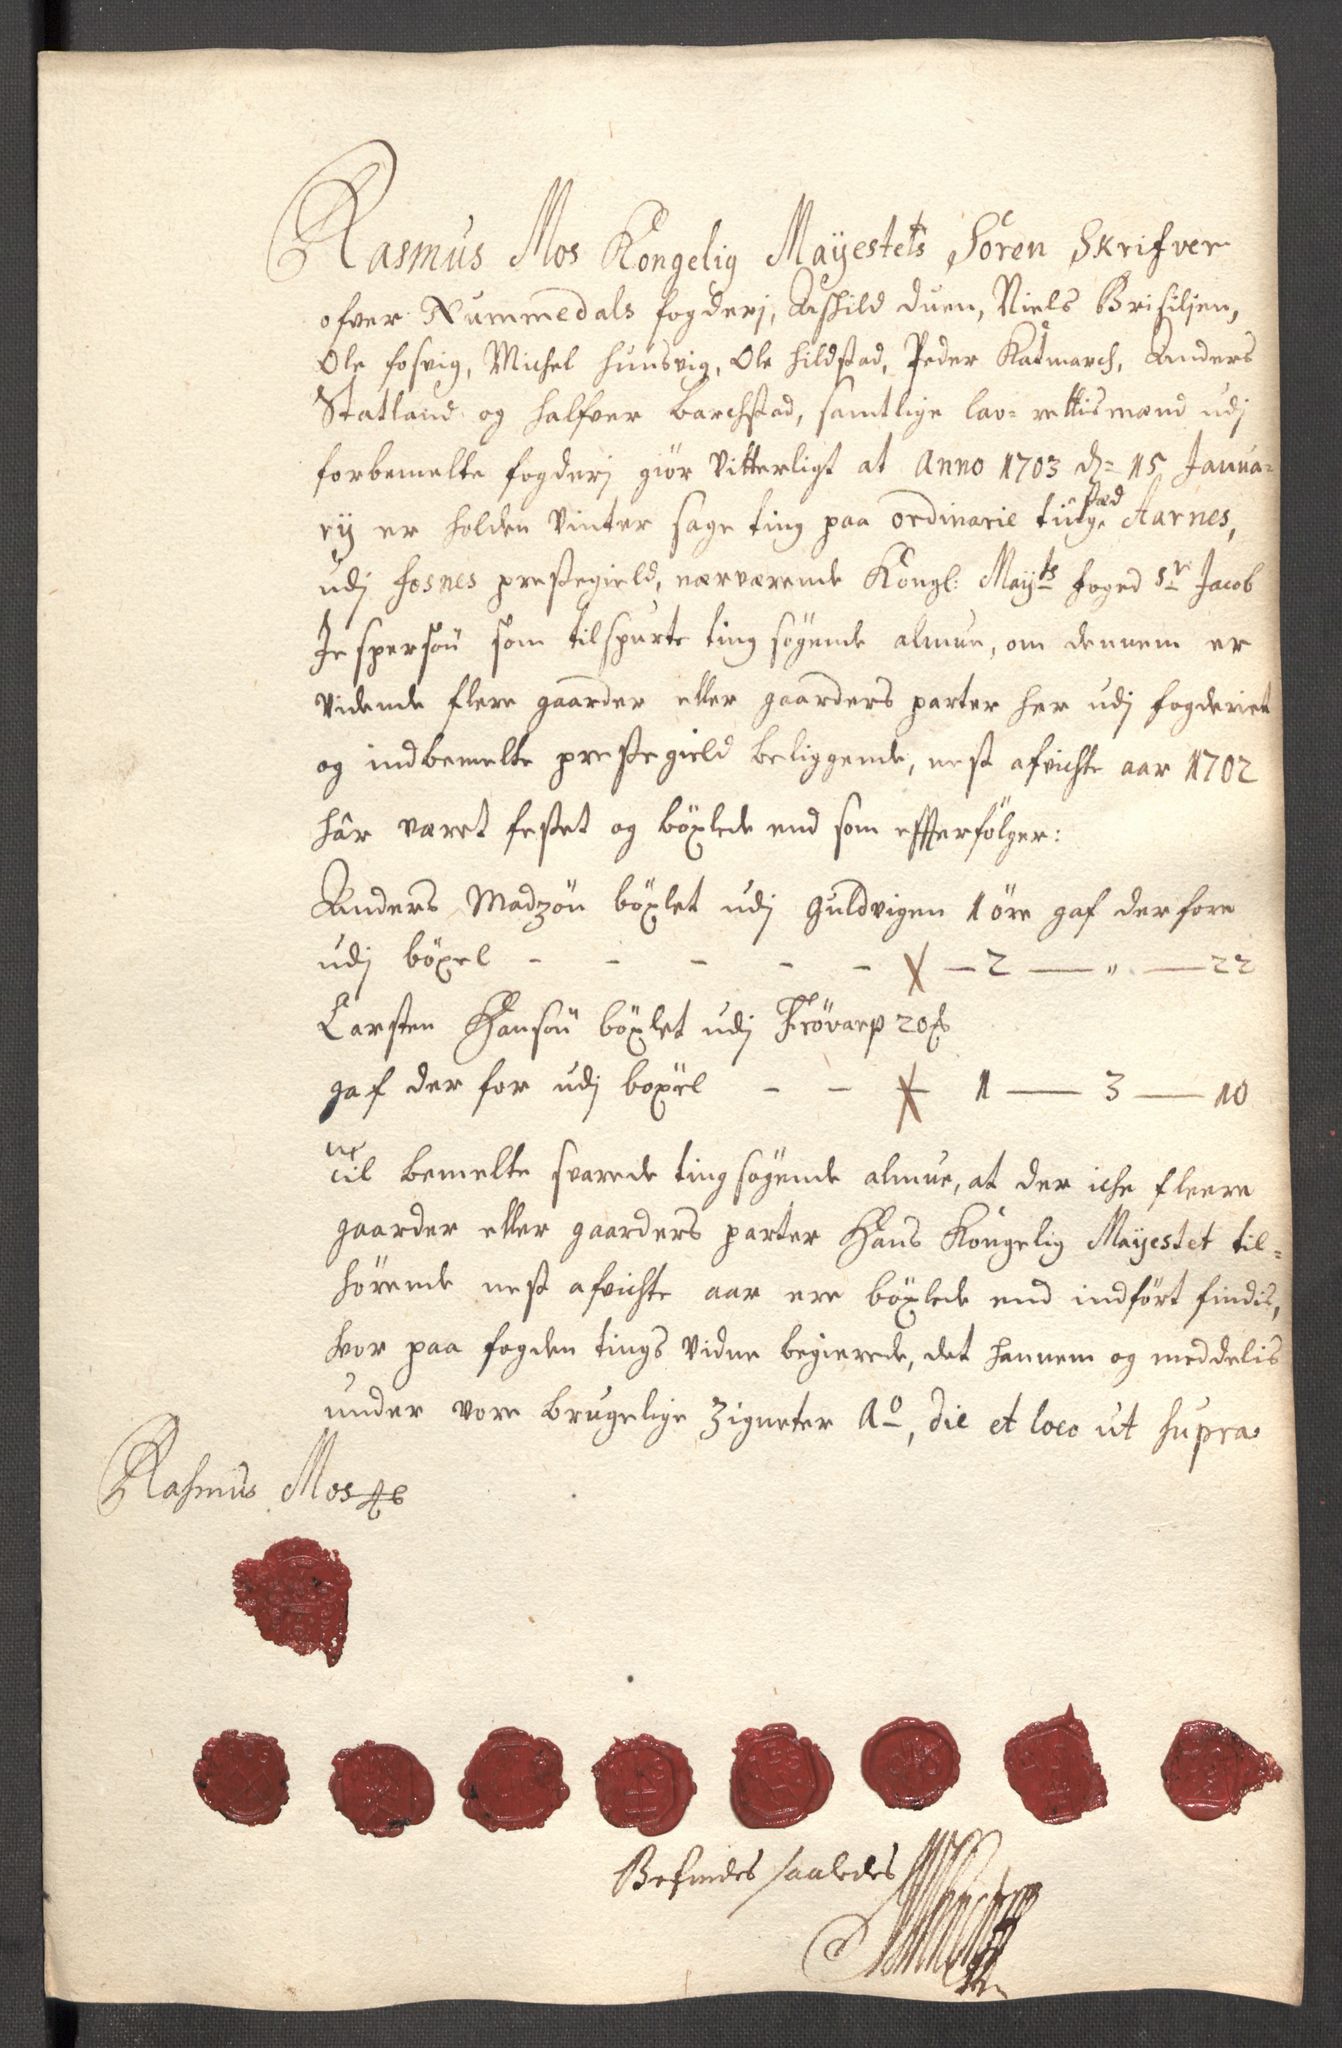 Rasmus Mos Kongelig Mayestets Sören Skrifver
ofver Nummedals fogderj, Aschild duen, Niels Brisiljen,
Ole fosvig, Michel hunsvig, Ole hildstad, Peder Katmarch, Anders
Statland og halfver barchstad, samtlige lav=rettismænd udj
forbemelte fogderj giör vitterligt at Anno 1703 d= 15 Janua=
rij er holden vinter sage ting paa ordinarie tingstæd Aarnes,
udj fosnes prestegield, nærværende Kongl: Mayts foged Sr Jacob
Jespersön som tilspurte ting sögende almue, om dennem er
vidende flere gaarder eller gaarders parter her udj fogderiet
og indbemelte prestegield beliggende, nest afvichte aar 1702
hår været festet og böxlede end som effterfölger:
Anders Madzön böxlet udj guldvigen 1 öre gaf derfore
udj böxel - - - - - 2 — " — 22
Carsten Hansön böxlet udj Frövarp 20
gaf der for udj boxel - - 1 — 3 — 10
til bemelte svarede ting sögende almue, at der iche fleere
gaarder eller gaarders parter Hans Kongelig Mayestet til=
hörende nest afvichte aar ere böxlede end indfört findis,
hvor paa fogden tings vidne begierede, det hannem og meddelis
under vore brugelige Zigneter Ao, die et loco ut supra
Rasmus Mos
Befindes saaledes